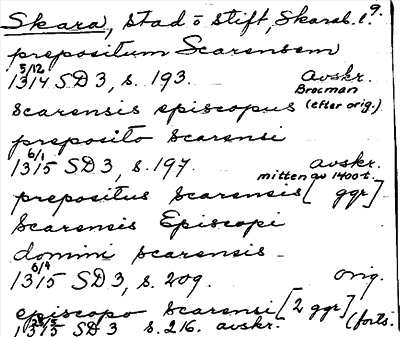 Skara, stad o stift, Skarab. l. 9.
prepositum Scarensem
5/12 1314 SD 3, s. 193. avskr.
Brocman
scarensis episcopus (efter orig.)
preposito scarensi
6/1 1315 SD 3, s. 197. avskr.
mitten av 1400-t.
prepositus scarensis [ ggr]
Scarensis Episcopi
domini scarensis
6/4 1315 SD 3, s. 209. orig.
episcopo scarensi [2 ggr]
1315 SD 3 s. 216. avskr. (forts.